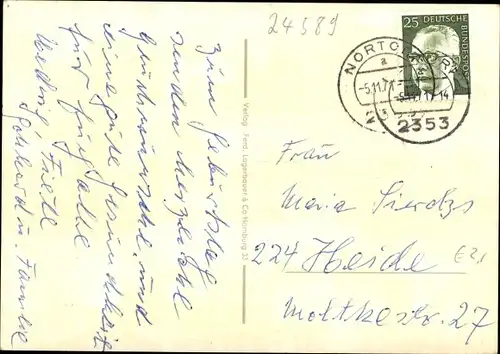 24589
25 DEUTSCHE
BUNDESPOST
NORTORF
a
-5.11.71-
-5.11.71-14
2353
Zum Geburtstag
senden herzliche
Glückwünsche, und
eine gute Gesundheit
für
Familie
Verlag Ferd. Lagerbauer & Co Hamburg 53
Frau
Maria Sierdzs
224 Heide
Moltkestr. 27